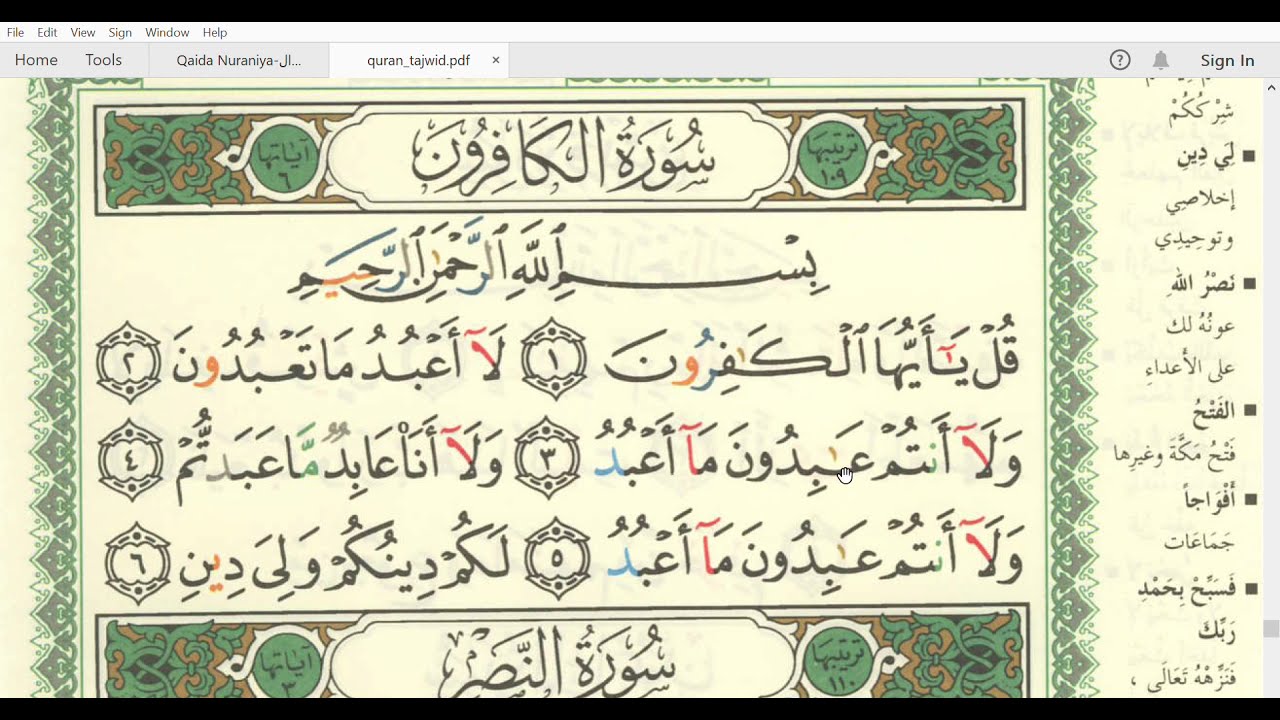 File Edit View Sign Window Help
Home Tools Qaida Nuraniya-ال... quran_tajwid.pdf × ? Sign In
آيَاتُهَا ٦ سُورَةُ الكَافِرُونَ تَرْتِيبُهَا ١٠٩
بِسْمِ ٱللَّهِ ٱلرَّحْمَٰنِ ٱلرَّحِيمِ
قُلْ يَـٰٓأَيُّهَا ٱلْكَـٰفِرُونَ ١ لَآ أَعْبُدُ مَا تَعْبُدُونَ ٢
وَلَآ أَنتُمْ عَـٰبِدُونَ مَآ أَعْبُدُ ٣ وَلَآ أَنَا۠ عَابِدٌ مَّا عَبَدتُّمْ ٤
وَلَآ أَنتُمْ عَـٰبِدُونَ مَآ أَعْبُدُ ٥ لَكُمْ دِينُكُمْ وَلِىَ دِينِ ٦
آيَاتُهَا ٣ سُورَةُ النَّصْرِ تَرْتِيبُهَا ١١٠
شِرْكُكُمْ
لِيَ دِينِ
إخلاصِي
وتوحِيدِي
نَصْرُ اللهِ
عونُهُ لك
على الأعداءِ
الفَتْحُ
فَتْحُ مَكَّةَ وغيرِها
أَفْوَاجاً
جَمَاعَات
فَسَبِّحْ بِحَمْدِ
رَبِّكَ
فَنَزِّهْهُ تَعَالَى ،